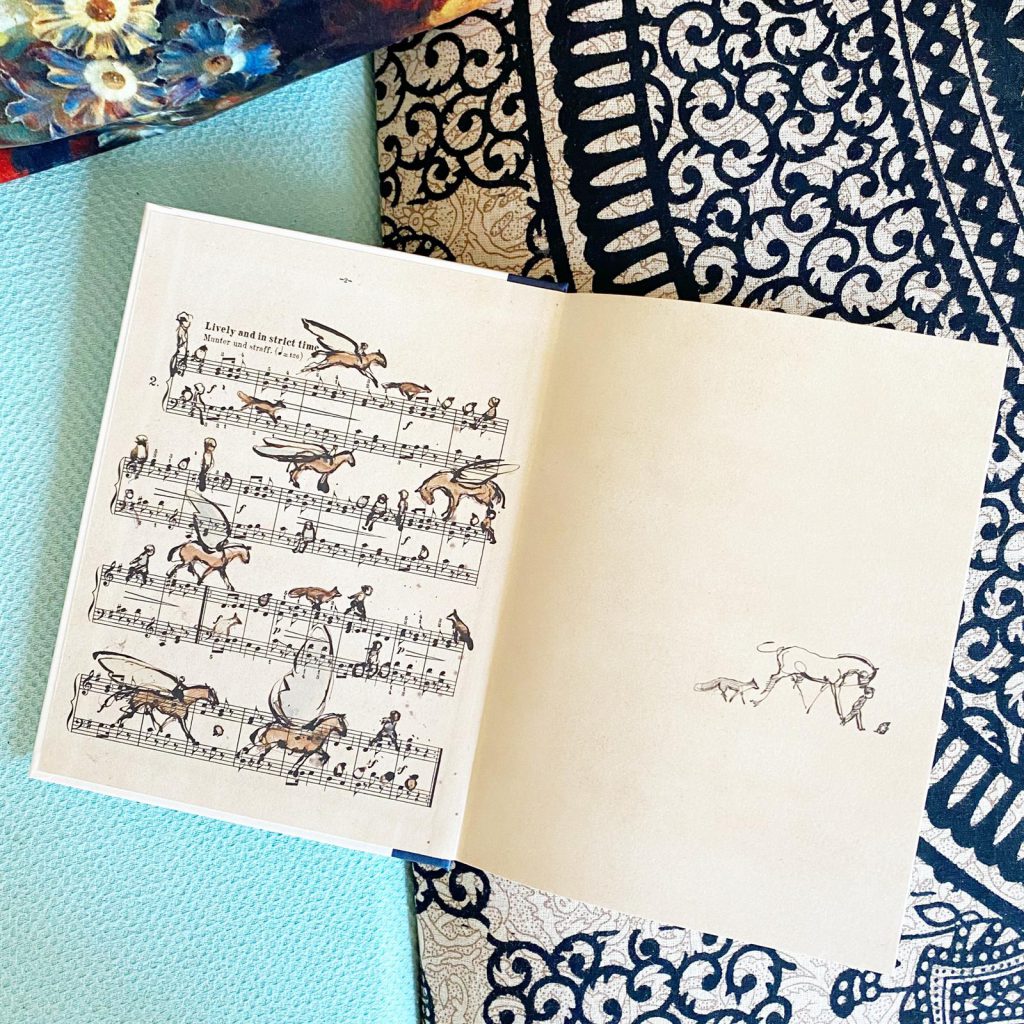 -2-
Lively and in strict time
Munter und straff. (♩=126)
2.